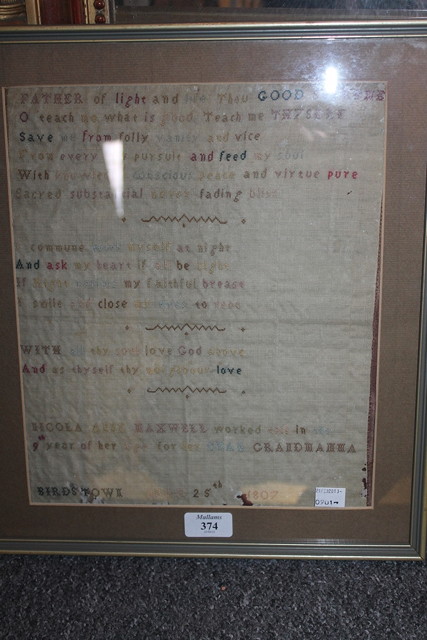 FATHER of light and life Thou GOOD
O teach me what is good Teach me THYSELF
Save me from folly vanity and vice
From every low pursuit and feed my soul
With conscious peace and virtue pure
Sacred substantial never fading bliss
I commune with myself at night
And ask my heart if all be right
If my faithful breast
I smile and close my eyes to
WITH all thy soul love God above
And as thyself thy neighbour love
MAXWELL worked this in
9th year of her for her DEAR
BIRDSTOWN 25th 1807
Mallams
374